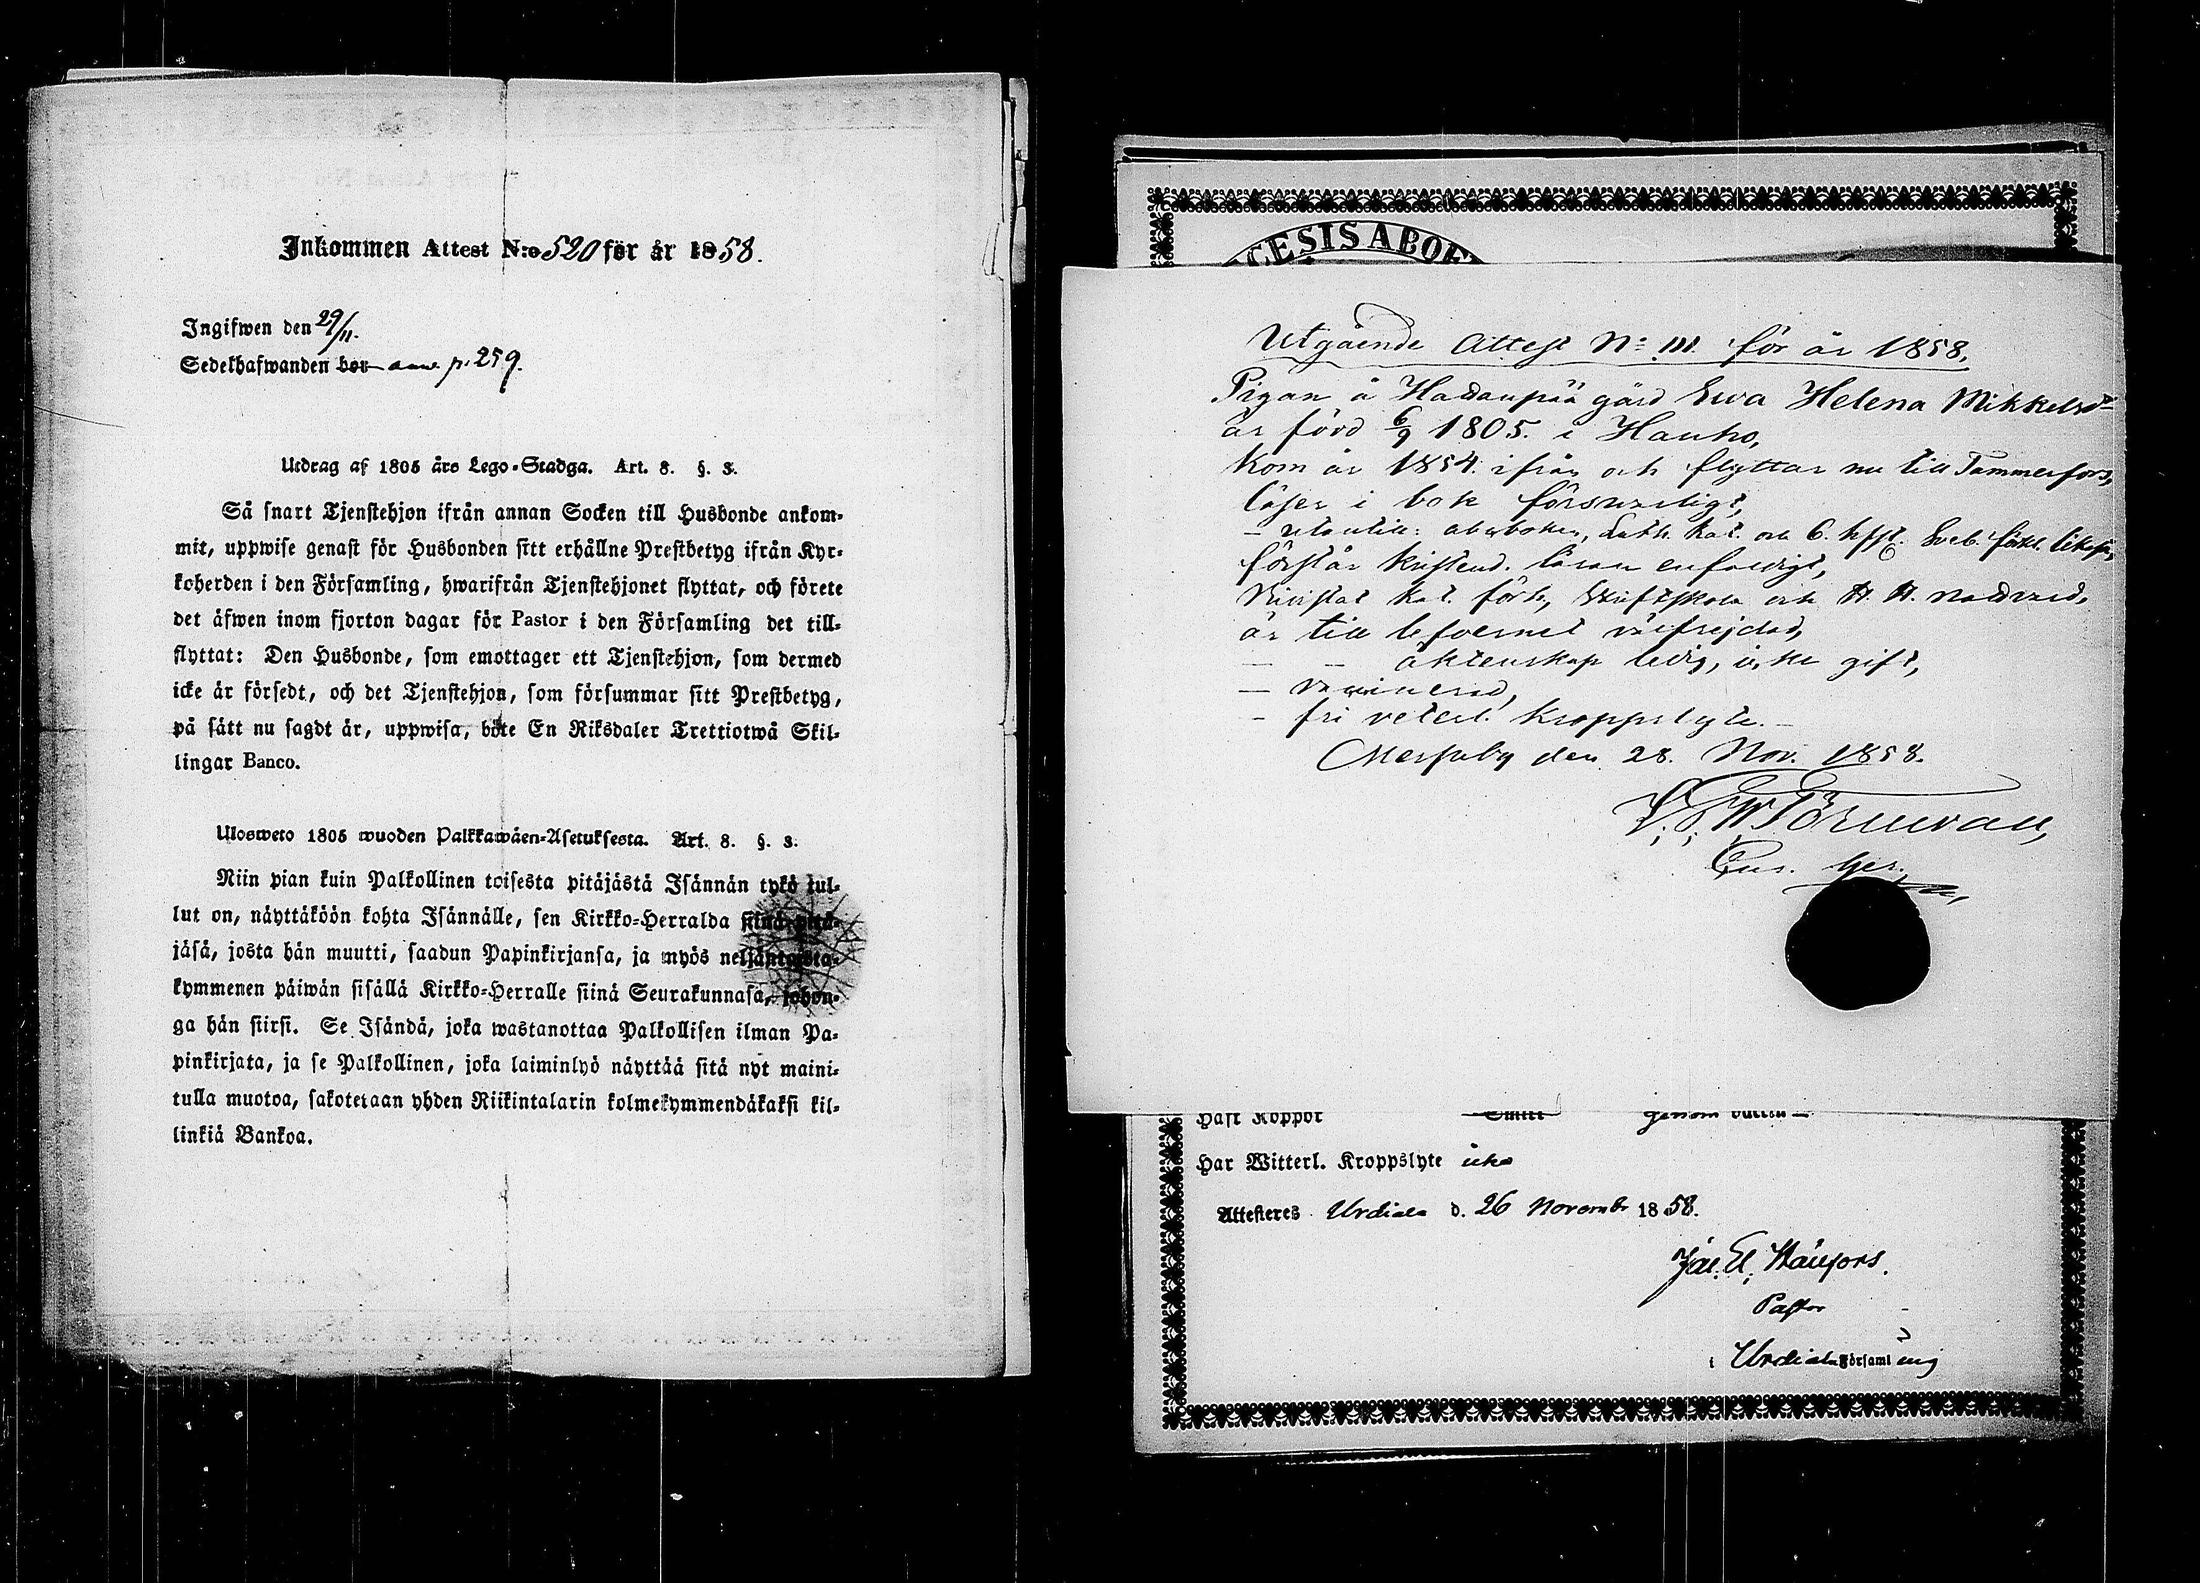 Inkommen Attest N:o 520 för år 1858.
Ingifwen den 29/11.
Sedelhafwanden bor anm. p. 259.
Utdrag af 1805 års Lego-Stadga. Art. 8. §. 3.
Så snart Tjenstehjon ifrån annan Socken till Husbonde ankom-
mit, uppwise genast för Husbonden sitt erhållne Prestbetyg ifrån Kyr-
koherden i den Församling, hwarifrån Tjenstehjonet flyttat, och förete
det äfwen inom fjorton dagar för Pastor i den Församling det till-
flyttat: Den Husbonde, som emottager ett Tjenstehjon, som dermed
icke är försedt, och det Tjenstehjon, som försummar sitt Prestbetyg,
på sätt nu sagdt är, uppwisa, böte En Riksdaler Trettiotwå Skil-
lingar Banco.
Ulosweto 1805 wuoden Palkkawäen-Asetuksesta. Art. 8. §. 3.
Niin pian kuin Palkollinen toisesta pitäjästä Isännän tykö tul-
lut on, näyttäköön kohta Isännälle, sen Kirkko-Herralda siinä pitä-
jäsä, josta hän muutti, saadun Papinkirjansa, ja myös neljäntoista-
kymmenen päiwän sisällä Kirkko-Herralle siinä Seurakunnasa, johon-
ga hän siirsi. Se Isändä, joka wastanottaa Palkollisen ilman Pa-
pinkirjata, ja se Palkollinen, joka laiminlyö näyttää sitä nyt maini-
tulla muotoa, sakotetaan yhden Riikintalarin kolmekymmendäkaksi kil-
linkiä Bankoa.
CESIS ABOE
Utgående Attest N:o 111. för år 1858.
Pigan å gård Ewa Helena Mikkelsdr
är född 6/9 1805. i Hauho,
Kom år 1854. ifrån och flyttar nu till Tammerfors,
läser i bok försvarligt,
- utantill: abcboken, Luth. Kat. och Sveb. förkl.
förstår kristend. läran enfaldigt,
Bivistat Kat. förh., Skriftskola och H. H. Nattvard,
är till lefvernet välfrejdad,
— — äktenskap ledig, icke gift,
— vaccinerad,
- fri veterl. kroppslyte. -
Messuby den 28. Nov. 1858.
Törnvall,
Haft Koppor Smitt genom vaccin —
Har Witterl. Kroppslyte icke
Attesteres Urdiala d. 26 Novembr 1858.
Pastor
i Urdiala Församling